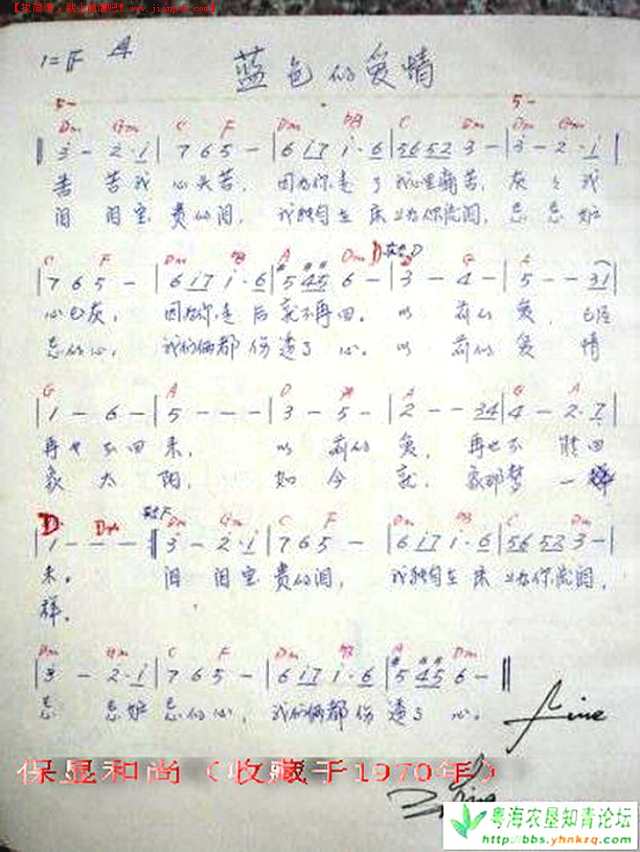 1=F A
蓝色的爱情
5- 5-
Dm Gm C F Dm bB C Dm Dm Gm
3 - 2·1 | 7 6 5 - | 6 17 1·6 | 56 52 3 - | 3 - 2·1 |
苦 苦我 心头苦, 因为你走了我心里痛苦, 灰 灰我
泪 泪宝 贵的泪, 我独自在床上为你流泪, 忘 忘好
C F Dm bB A Dm D
| 7 6 5 - | 6 17 1·6 | 5 45 6 - | 3 - 4 - | 5 - - 31 |
心已灰, 因为你走后就不再回。以 前的 爱, 已经
忘的心, 我们俩都伤透了心。以 前的 爱 情
G A D A G A
| 1 - 6 - | 5 - - - | 3 - 5 - | 2 - - 34 | 4 - 2·1 |
再也不回来, 以 前的 爱, 再也不 能回
象太阳, 如今 就, 象那梦 一
D 转F Dm Gm C F Dm bB C Dm
1 - - - || 3 - 2·1 | 7 6 5 - | 6 17 1·6 | 56 52 3 - |
来。 泪 泪宝 贵的泪, 我独自在床上为你流泪,
样。
Dm Gm C F Dm bB A Dm
| 3 - 2·1 | 7 6 5 - | 6 17 1·6 | 5 45 6 - ||
忘 忘好 忘的心, 我们俩都伤透了心。
Fine
保显和尚（收藏于1970年）
粤海农垦知青论坛
http://bbs.yhnkzq.com